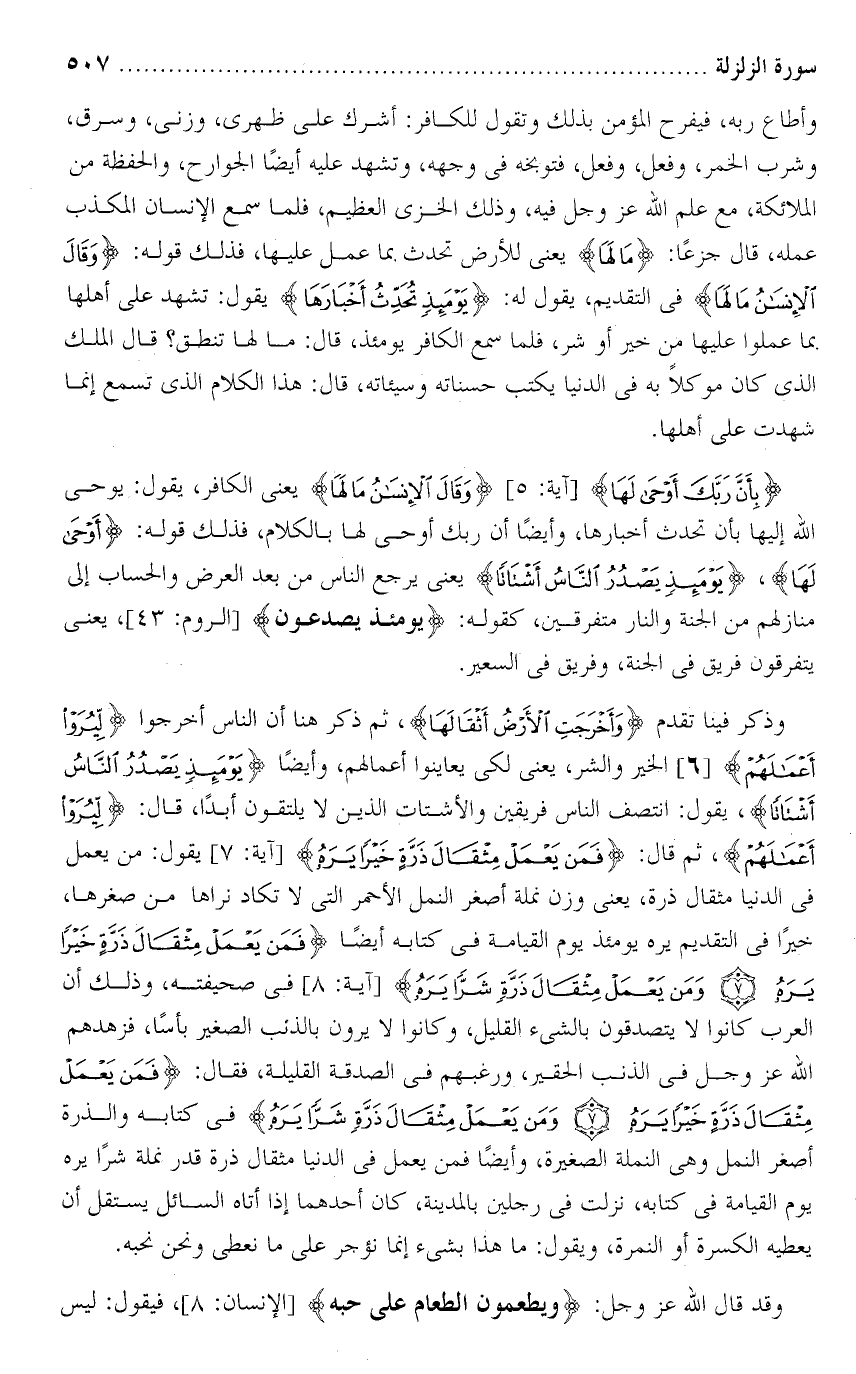 سورة الزلزلة ........................................................................ ٥٠٧
وأطاع ربه، فيفرح المؤمن بذلك وتقول للكافر: أشرك على ظهرى، وزنى، وسرق،
وشرب الخمر، وفعل، وفعل، فتوبخه فى وجهه، وتشهد عليه أيضًا الجوارح، والحفظة من
الملائكة، مع علم الله عز وجل فيه، وذلك الخزى العظيم، فلما سمع الإنسان المكذب
عمله، قال جزعًا: ﴿مَا لَهَا﴾ يعنى للأرض تحدث بما عمل عليها، فذلك قوله: ﴿وَقَالَ
ٱلْإِنسَٰنُ مَا لَهَا﴾ فى التقديم، يقول له: ﴿يَوْمَئِذٍ تُحَدِّثُ أَخْبَارَهَا﴾ يقول: تشهد على أهلها
بما عملوا عليها من خير أو شر، فلما سمع الكافر يومئذ، قال: ما لها تنطق؟ قال الملك
الذى كان موكلاً به فى الدنيا يكتب حسناته وسيئاته، قال: هذا الكلام الذى تسمع إنما
شهدت على أهلها.
﴿بِأَنَّ رَبَّكَ أَوْحَىٰ لَهَا﴾ [آية: ٥] ﴿وَقَالَ ٱلْإِنسَٰنُ مَا لَهَا﴾ يعنى الكافر، يقول: يوحى
الله إليها بأن تحدث أخبارها، وأيضًا أن ربك أوحى لها بالكلام، فذلك قوله: ﴿أَوْحَىٰ
لَهَا﴾، ﴿يَوْمَئِذٍ يَصْدُرُ ٱلنَّاسُ أَشْتَاتًا﴾ يعنى يرجع الناس من بعد العرض والحساب إلى
منازلهم من الجنة والنار متفرقين، كقوله: ﴿يومئذ يصدعون﴾ [الروم: ٤٣]، يعنى
يتفرقون فريق فى الجنة، وفريق فى السعير.
وذكر فينا تقدم ﴿وَأَخْرَجَتِ ٱلْأَرْضُ أَثْقَالَهَا﴾، ثم ذكر هنا أن الناس أخرجوا ﴿لِّيُرَوْا۟
أَعْمَٰلَهُمْ﴾ [٦] الخير والشر، يعنى لكى يعاينوا أعمالهم، وأيضًا ﴿يَوْمَئِذٍ يَصْدُرُ ٱلنَّاسُ
أَشْتَاتًا﴾، يقول: انتصف الناس فريقين والأشتات الذين لا يلتقون أبدًا، قال: ﴿لِّيُرَوْا۟
أَعْمَٰلَهُمْ﴾، ثم قال: ﴿فَمَن يَعْمَلْ مِثْقَالَ ذَرَّةٍ خَيْرًا يَرَهُۥ﴾ [آية: ٧] يقول: من يعمل
فى الدنيا مثقال ذرة، يعنى وزن نملة أصغر النمل الأحمر التى لا تكاد نراها من صغرها،
خيرًا فى التقديم يره يومئذ يوم القيامة فى كتابه أيضًا ﴿فَمَن يَعْمَلْ مِثْقَالَ ذَرَّةٍ خَيْرًا
يَرَهُۥ ٧ وَمَن يَعْمَلْ مِثْقَالَ ذَرَّةٍ شَرًّا يَرَهُۥ﴾ [آية: ٨] فى صحيفته، وذلك أن
العرب كانوا لا يتصدقون بالشىء القليل، وكانوا لا يرون بالذئب الصغير بأسًا، فزهدهم
الله عز وجل فى الذنب الحقير، ورغبهم فى الصدقة القليلة، فقال: ﴿فَمَن يَعْمَلْ
مِثْقَالَ ذَرَّةٍ خَيْرًا يَرَهُۥ ٧ وَمَن يَعْمَلْ مِثْقَالَ ذَرَّةٍ شَرًّا يَرَهُۥ﴾ فى كتابه والذرة
أصغر النمل وهى النملة الصغيرة، وأيضًا فمن يعمل فى الدنيا مثقال ذرة قدر نملة شرًا يره
يوم القيامة فى كتابه، نزلت فى رجلين بالمدينة، كان أحدهما إذا أتاه السائل يستقل أن
يعطيه الكسرة أو النمرة، ويقول: ما هذا بشىء إنما نؤجر على ما نعطى ونحن نحبه.
وقد قال الله عز وجل: ﴿ويطعمون الطعام على حبه﴾ [الإنسان: ٨]، فيقول: ليس